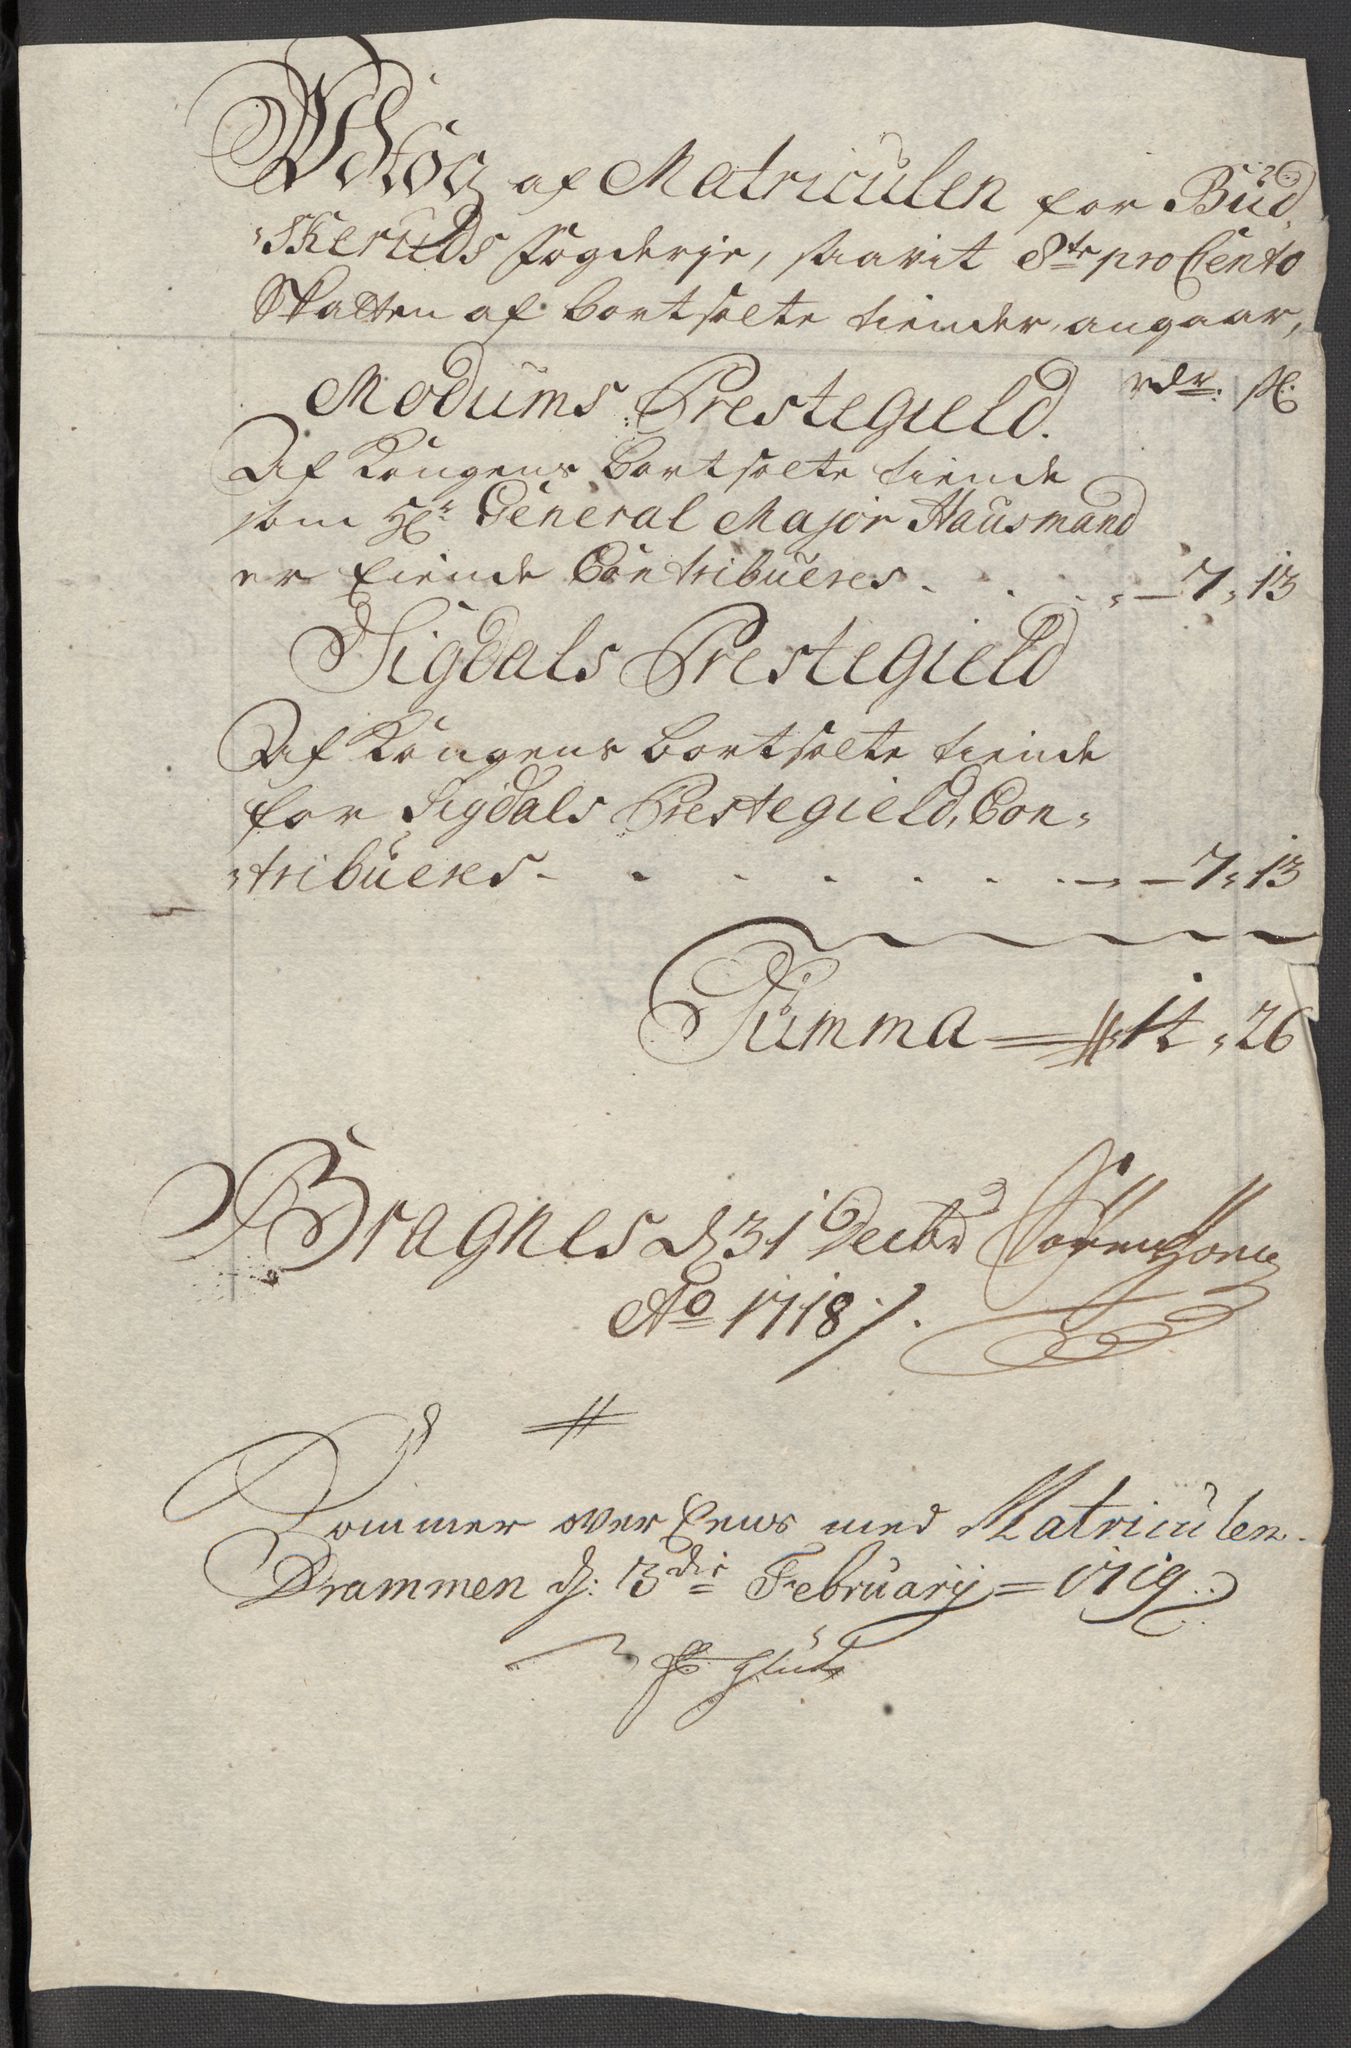 Udtog af Matriculen for Bud-
-skeruds fogderje, saavit 8te pro Cento
Skatten af bortsolte tiender, angaar,
Modums Prestegield. rdr. sk:
Af Kongens bortsolte tiende
som Hr. General Major Hausmand
er Eiende Contribueres . . . . - 7 " 13
Sigdals Prestegield
Af Kongens bortsolte tiende
for Sigdals Prestegield, Con-
-tribueres - . . . . . . - 7 " 13
Summa = 14 " 26
Bragnes d 31 Decbr
Ao 1718 /.
Kommer over Eens med Matriculen.
Drammen d: 13die Februarij = 1719.